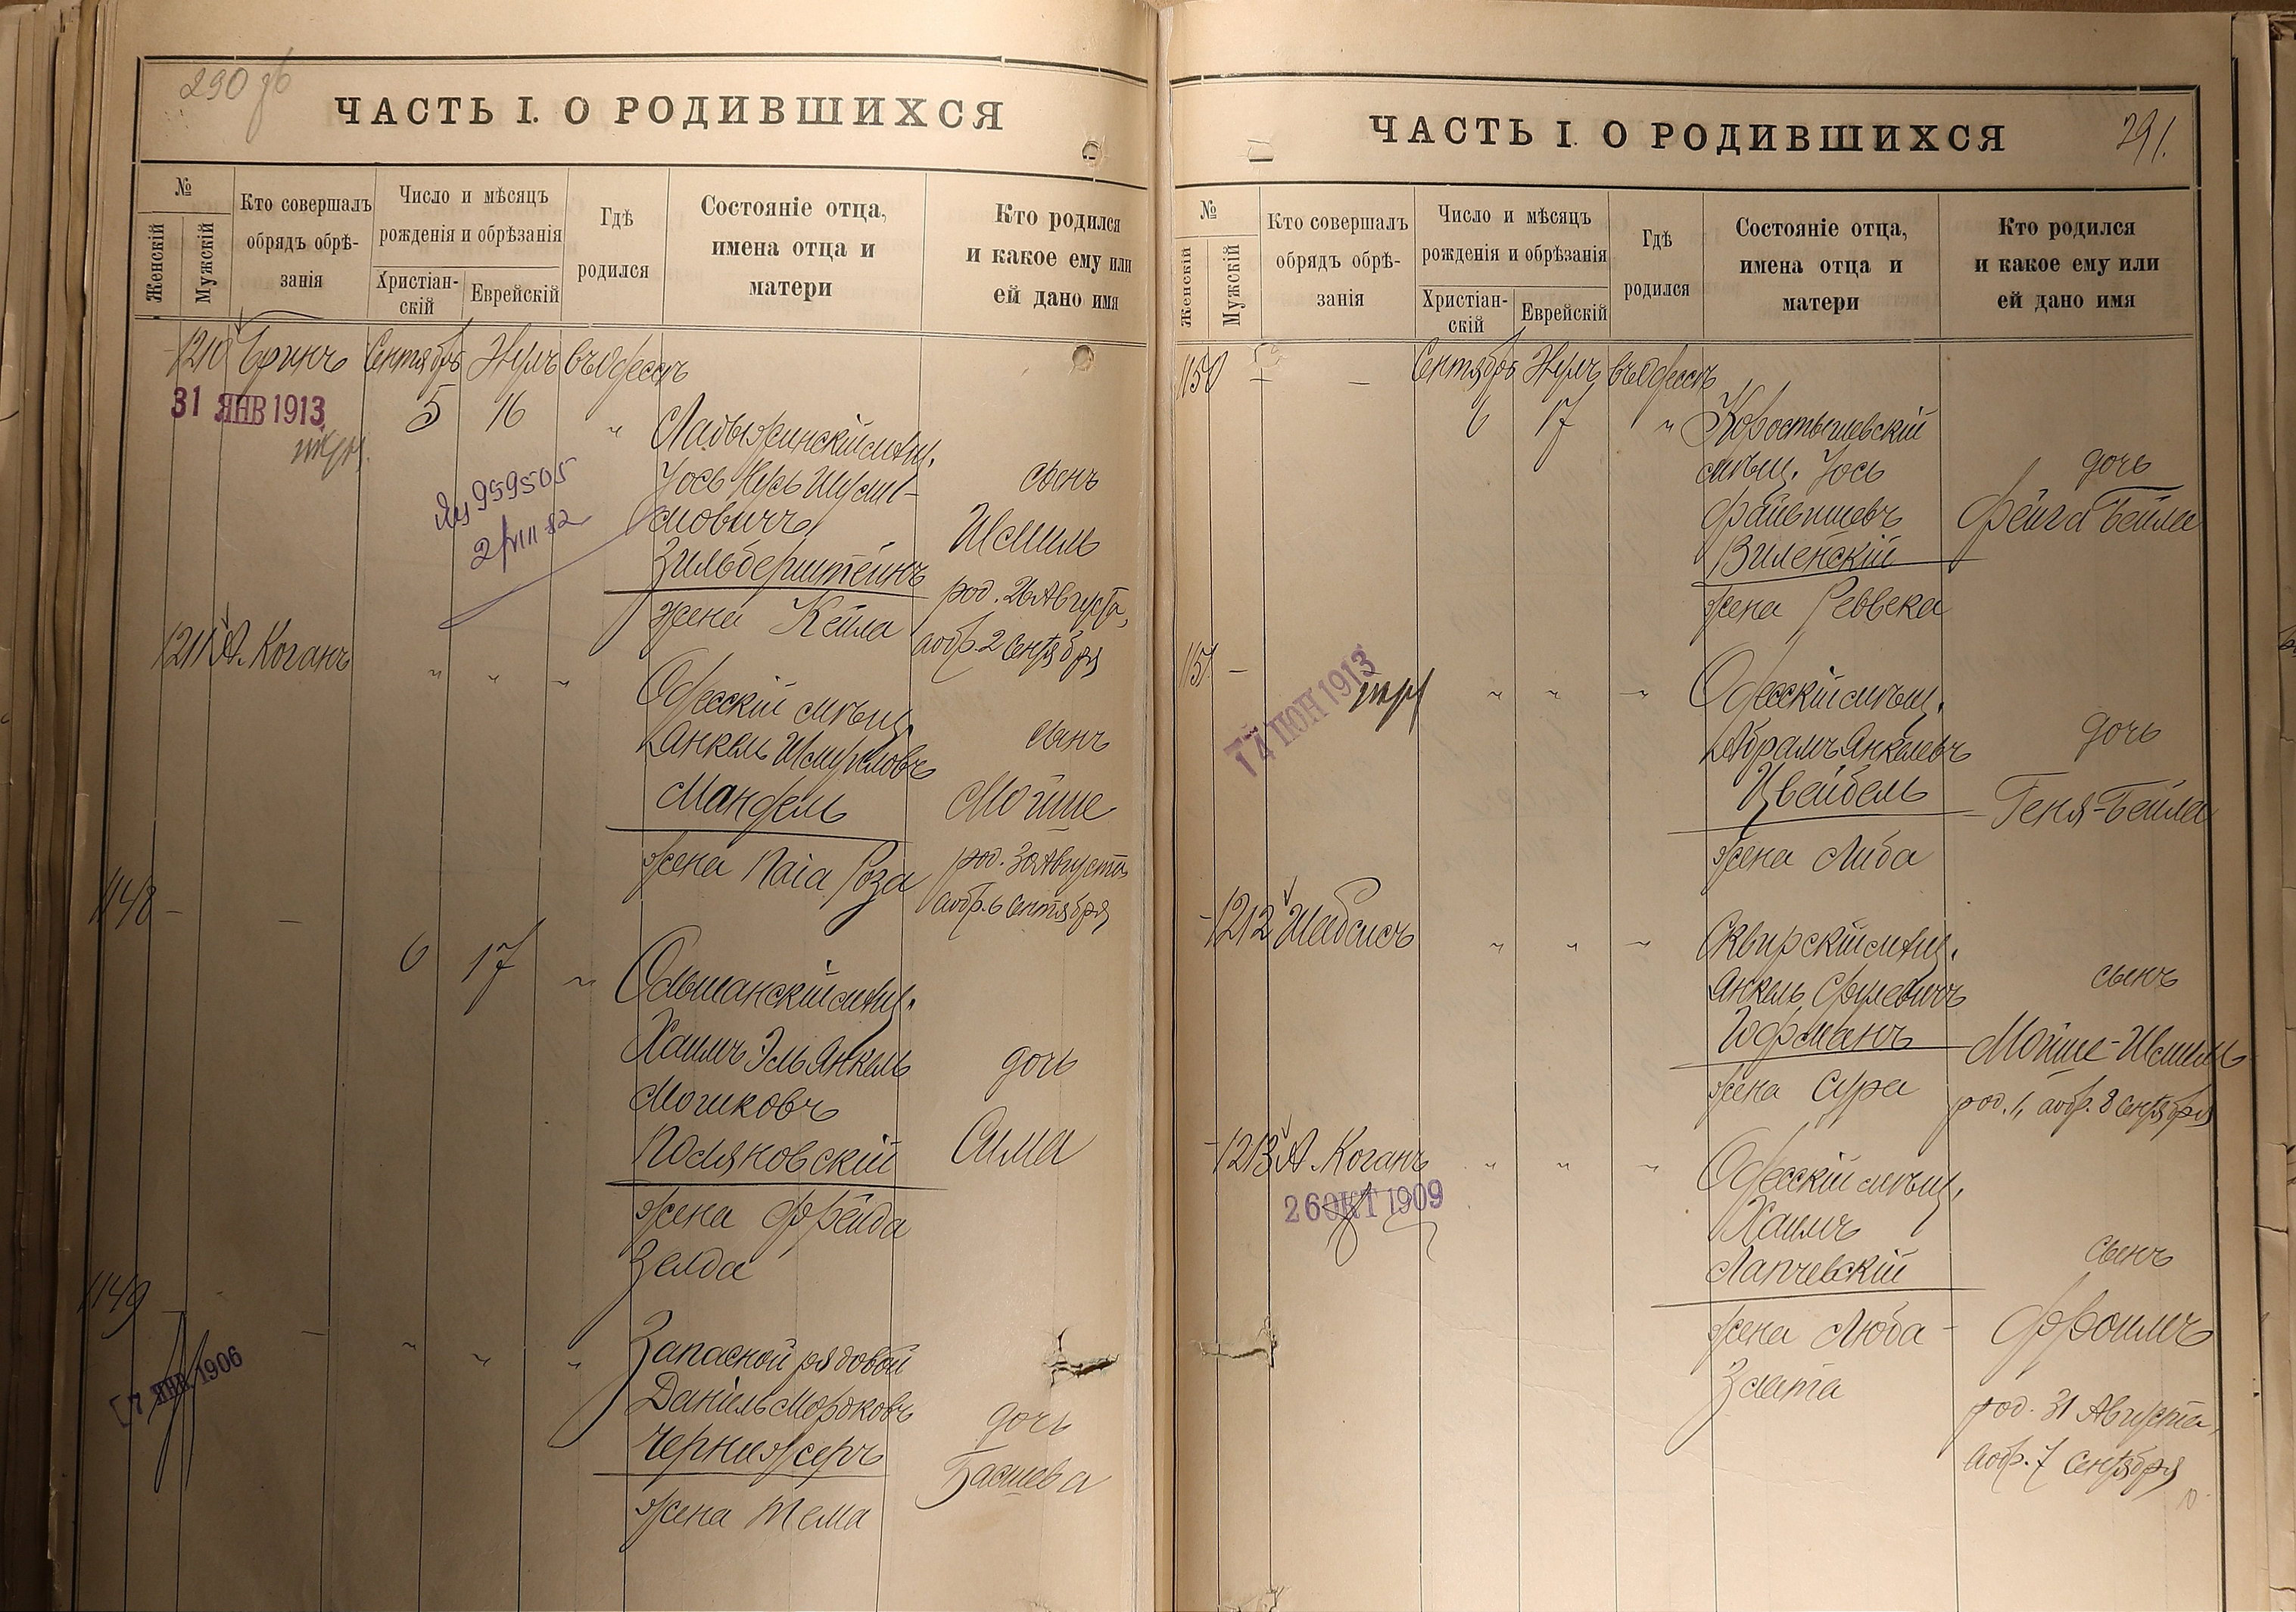 290 об
ЧАСТЬ I. О РОДИВШИХСЯ
№
Женскій
Мужскій
Кто совершалъ
обрядъ обрѣ-
занія
Число и мѣсяцъ
рожденія и обрѣзанія
Христіан-
скій
Еврейскій
Гдѣ
родился
Состояніе отца,
имена отца и
матери
Кто родился
и какое ему или
ей дано имя
1210
Сентябрь Элулъ въ Одессѣ
31 ЯНВ 1913
5 16 "
Ладыжинскій мѣщ.
Іось Нусь Шулимовичъ
Зильберштейнъ
жена Кейла
сынъ
Шмиль
род. 26 Августа,
а обр. 2 Сентября
959505
2/VIII 82
1211 А. Коганъ
" " "
Одесскій мѣщ.
Янкель Шмулевъ
Мандель
жена Паіа Роза
сынъ
Мойше
род. 30 Августа
а обр. 6 Сентября
1148 - -
6 17 "
Ольшанскій мѣщ.
Хаимъ Эль Янкель
Мошковъ
Поляновскій
жена Фрейда
Зелда
дочь
Сима
1149 - -
17 ЯНВ 1906
" " "
Запасной рядовой
Даніиль Мордковъ
Черножеръ
жена Тема
дочь
Басшева
ЧАСТЬ I. О РОДИВШИХСЯ
291.
№
Женскій
Мужскій
Кто совершалъ
обрядъ обрѣ-
занія
Число и мѣсяцъ
рожденія и обрѣзанія
Христіан-
скій
Еврейскій
Гдѣ
родился
Состояніе отца,
имена отца и
матери
Кто родился
и какое ему или
ей дано имя
1150 - -
Сентябрь Элулъ въ Одессѣ
6 17 "
Коростышевскій
мѣщ. Іось
Файвишевъ
Виленскій
жена Реввека
дочь
Фейга Бейла
1151 -
14 ІЮН 1913
" " "
Одесскій мѣщ.
Абрамъ Янкелевъ
Цвейбель
жена Либа
дочь
Геня-Бейла
1212 Шабсисъ
" " "
Сквирскій мѣщ.
Янкель Срулевичъ
Гофманъ
жена Сура
сынъ
Мойше-Шмиль
род. 1, а обр. 8 Сентября
1213 А. Коганъ
26 ОКТ 1909
" " "
Одесскій мѣщ.
Хаимъ
Лапчевскій
жена Люба-
Злата
сынъ
Фроимъ
род. 31 Августа,
а обр. 7 Сентября